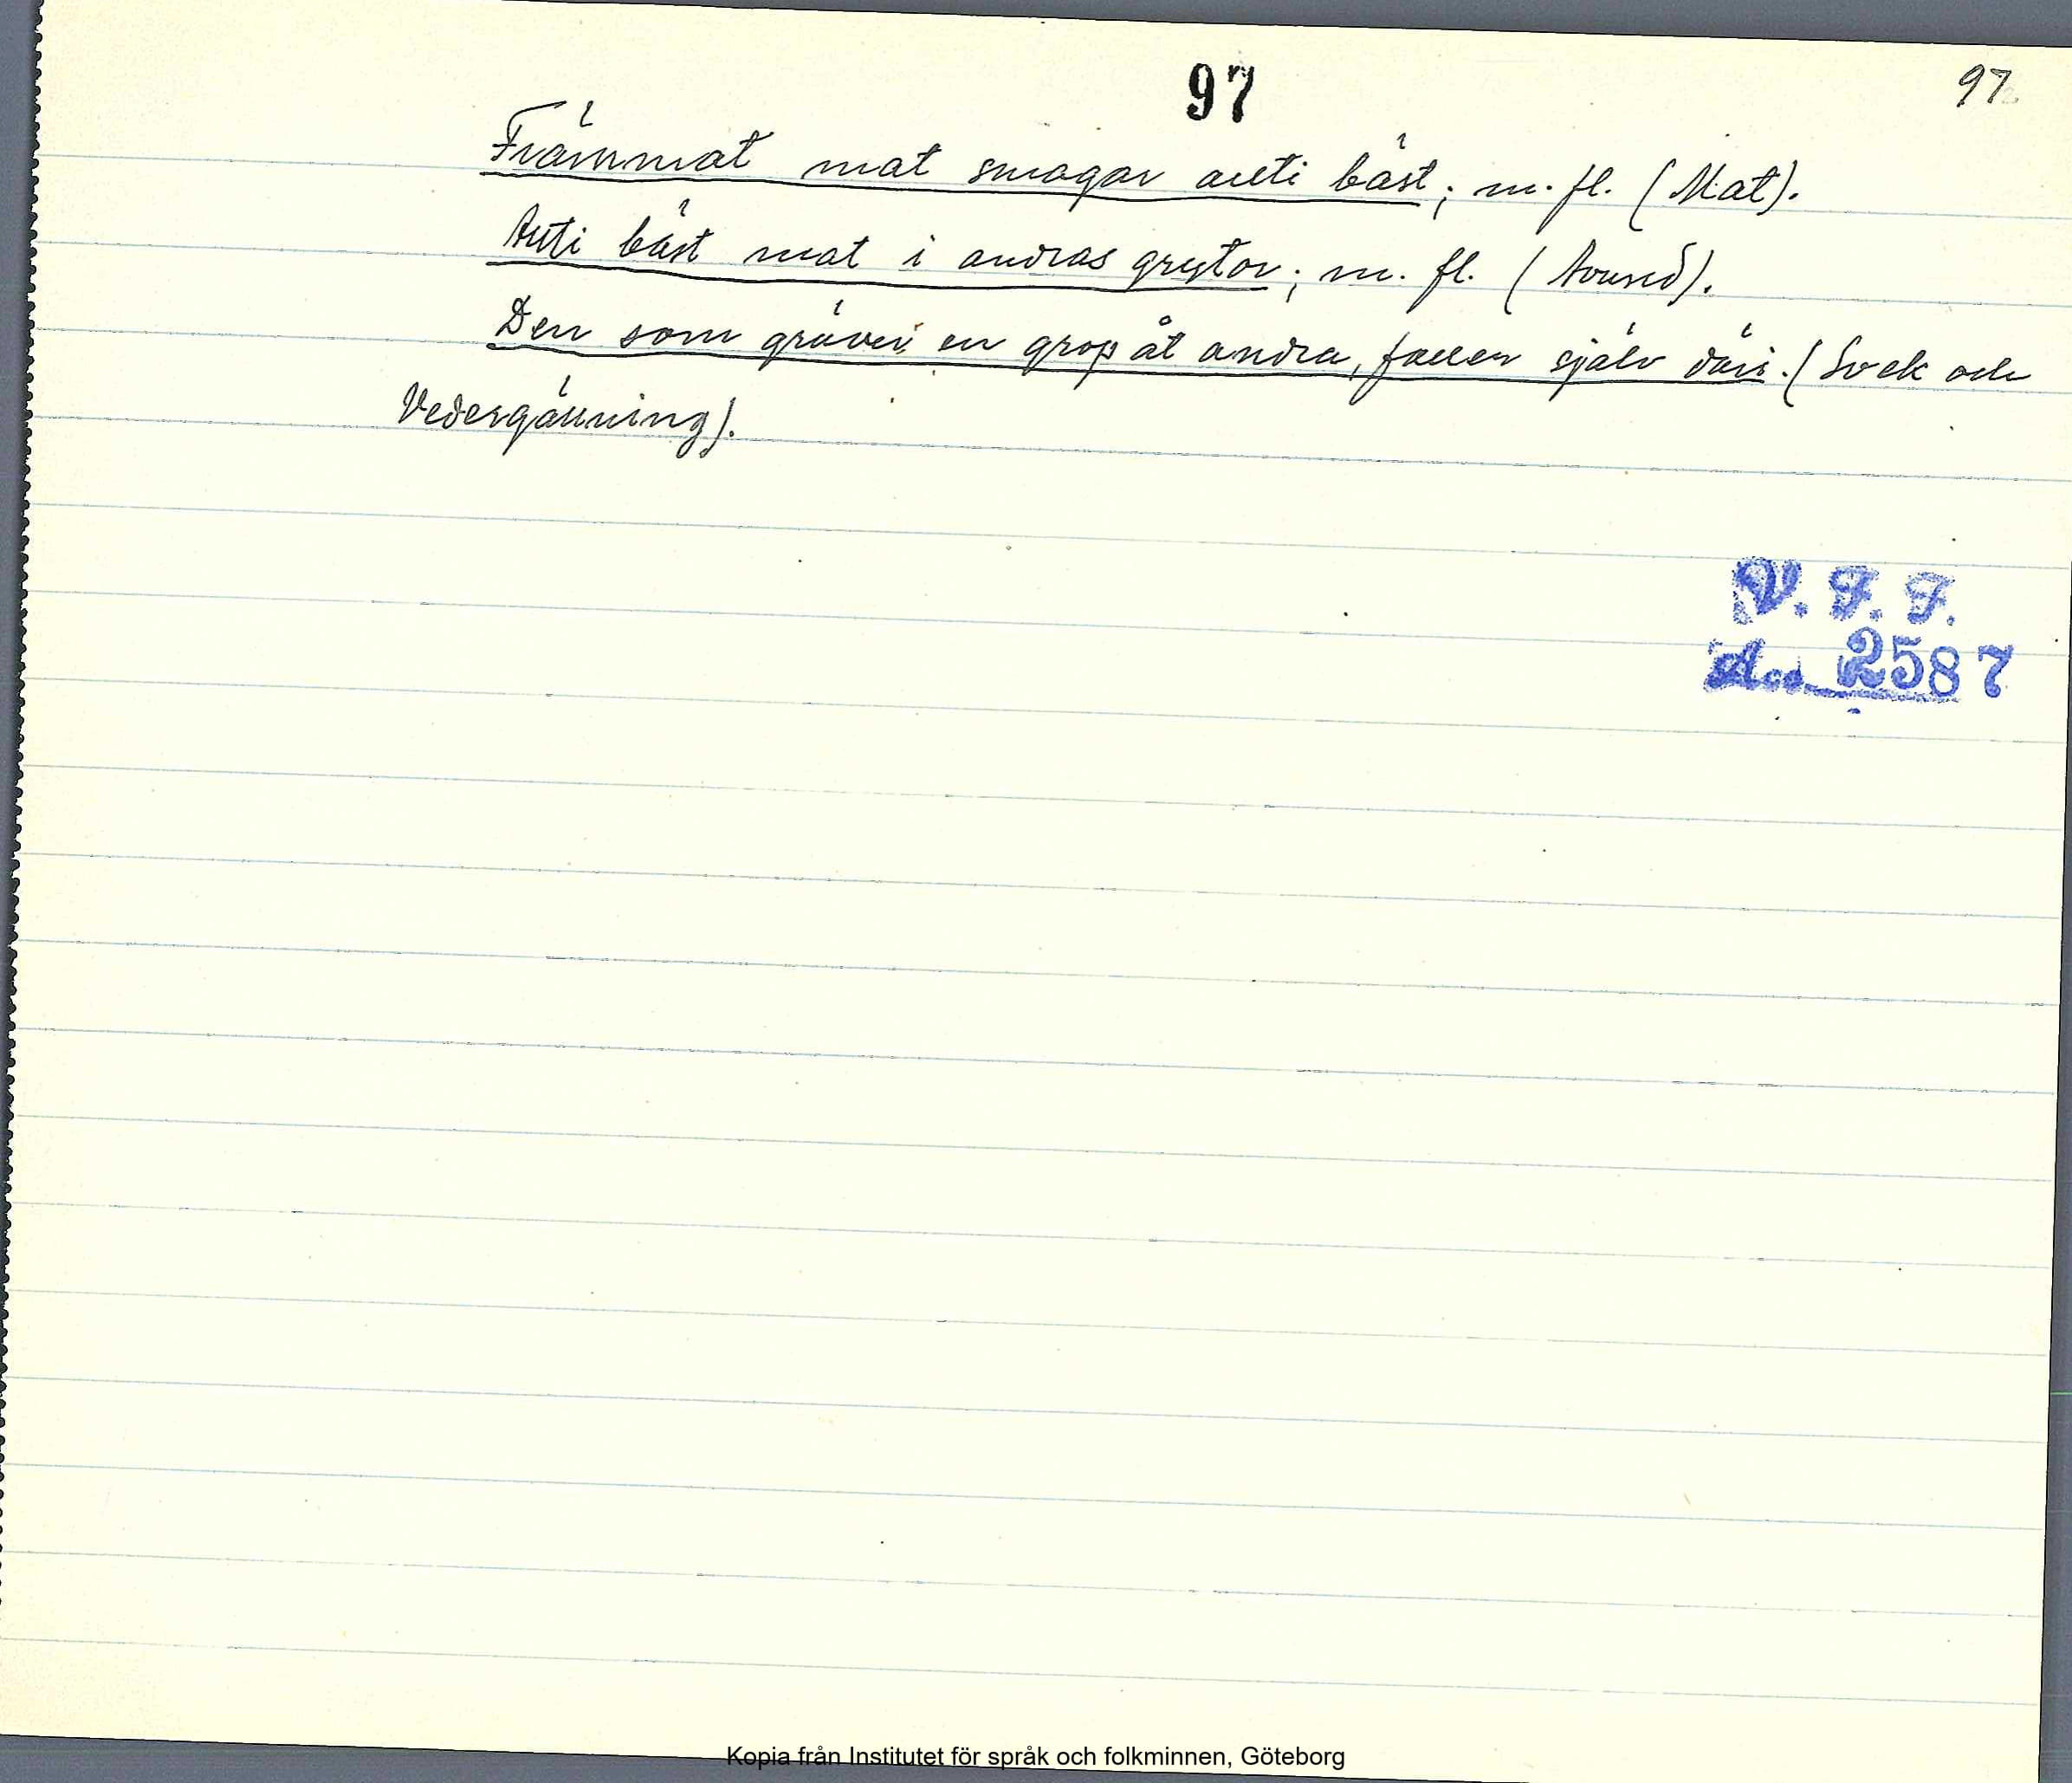 97
97
Främmat mat smagar allti bäst; m. fl. (Mat).
Allti bäst mat i andras grytor; m. fl. (Avund).
Den som gräver en grop åt andra, faller själv däri. (Svek och
Vedergällning).
V. F. F.
Acc. 2587
Kopia från Institutet för språk och folkminnen, Göteborg